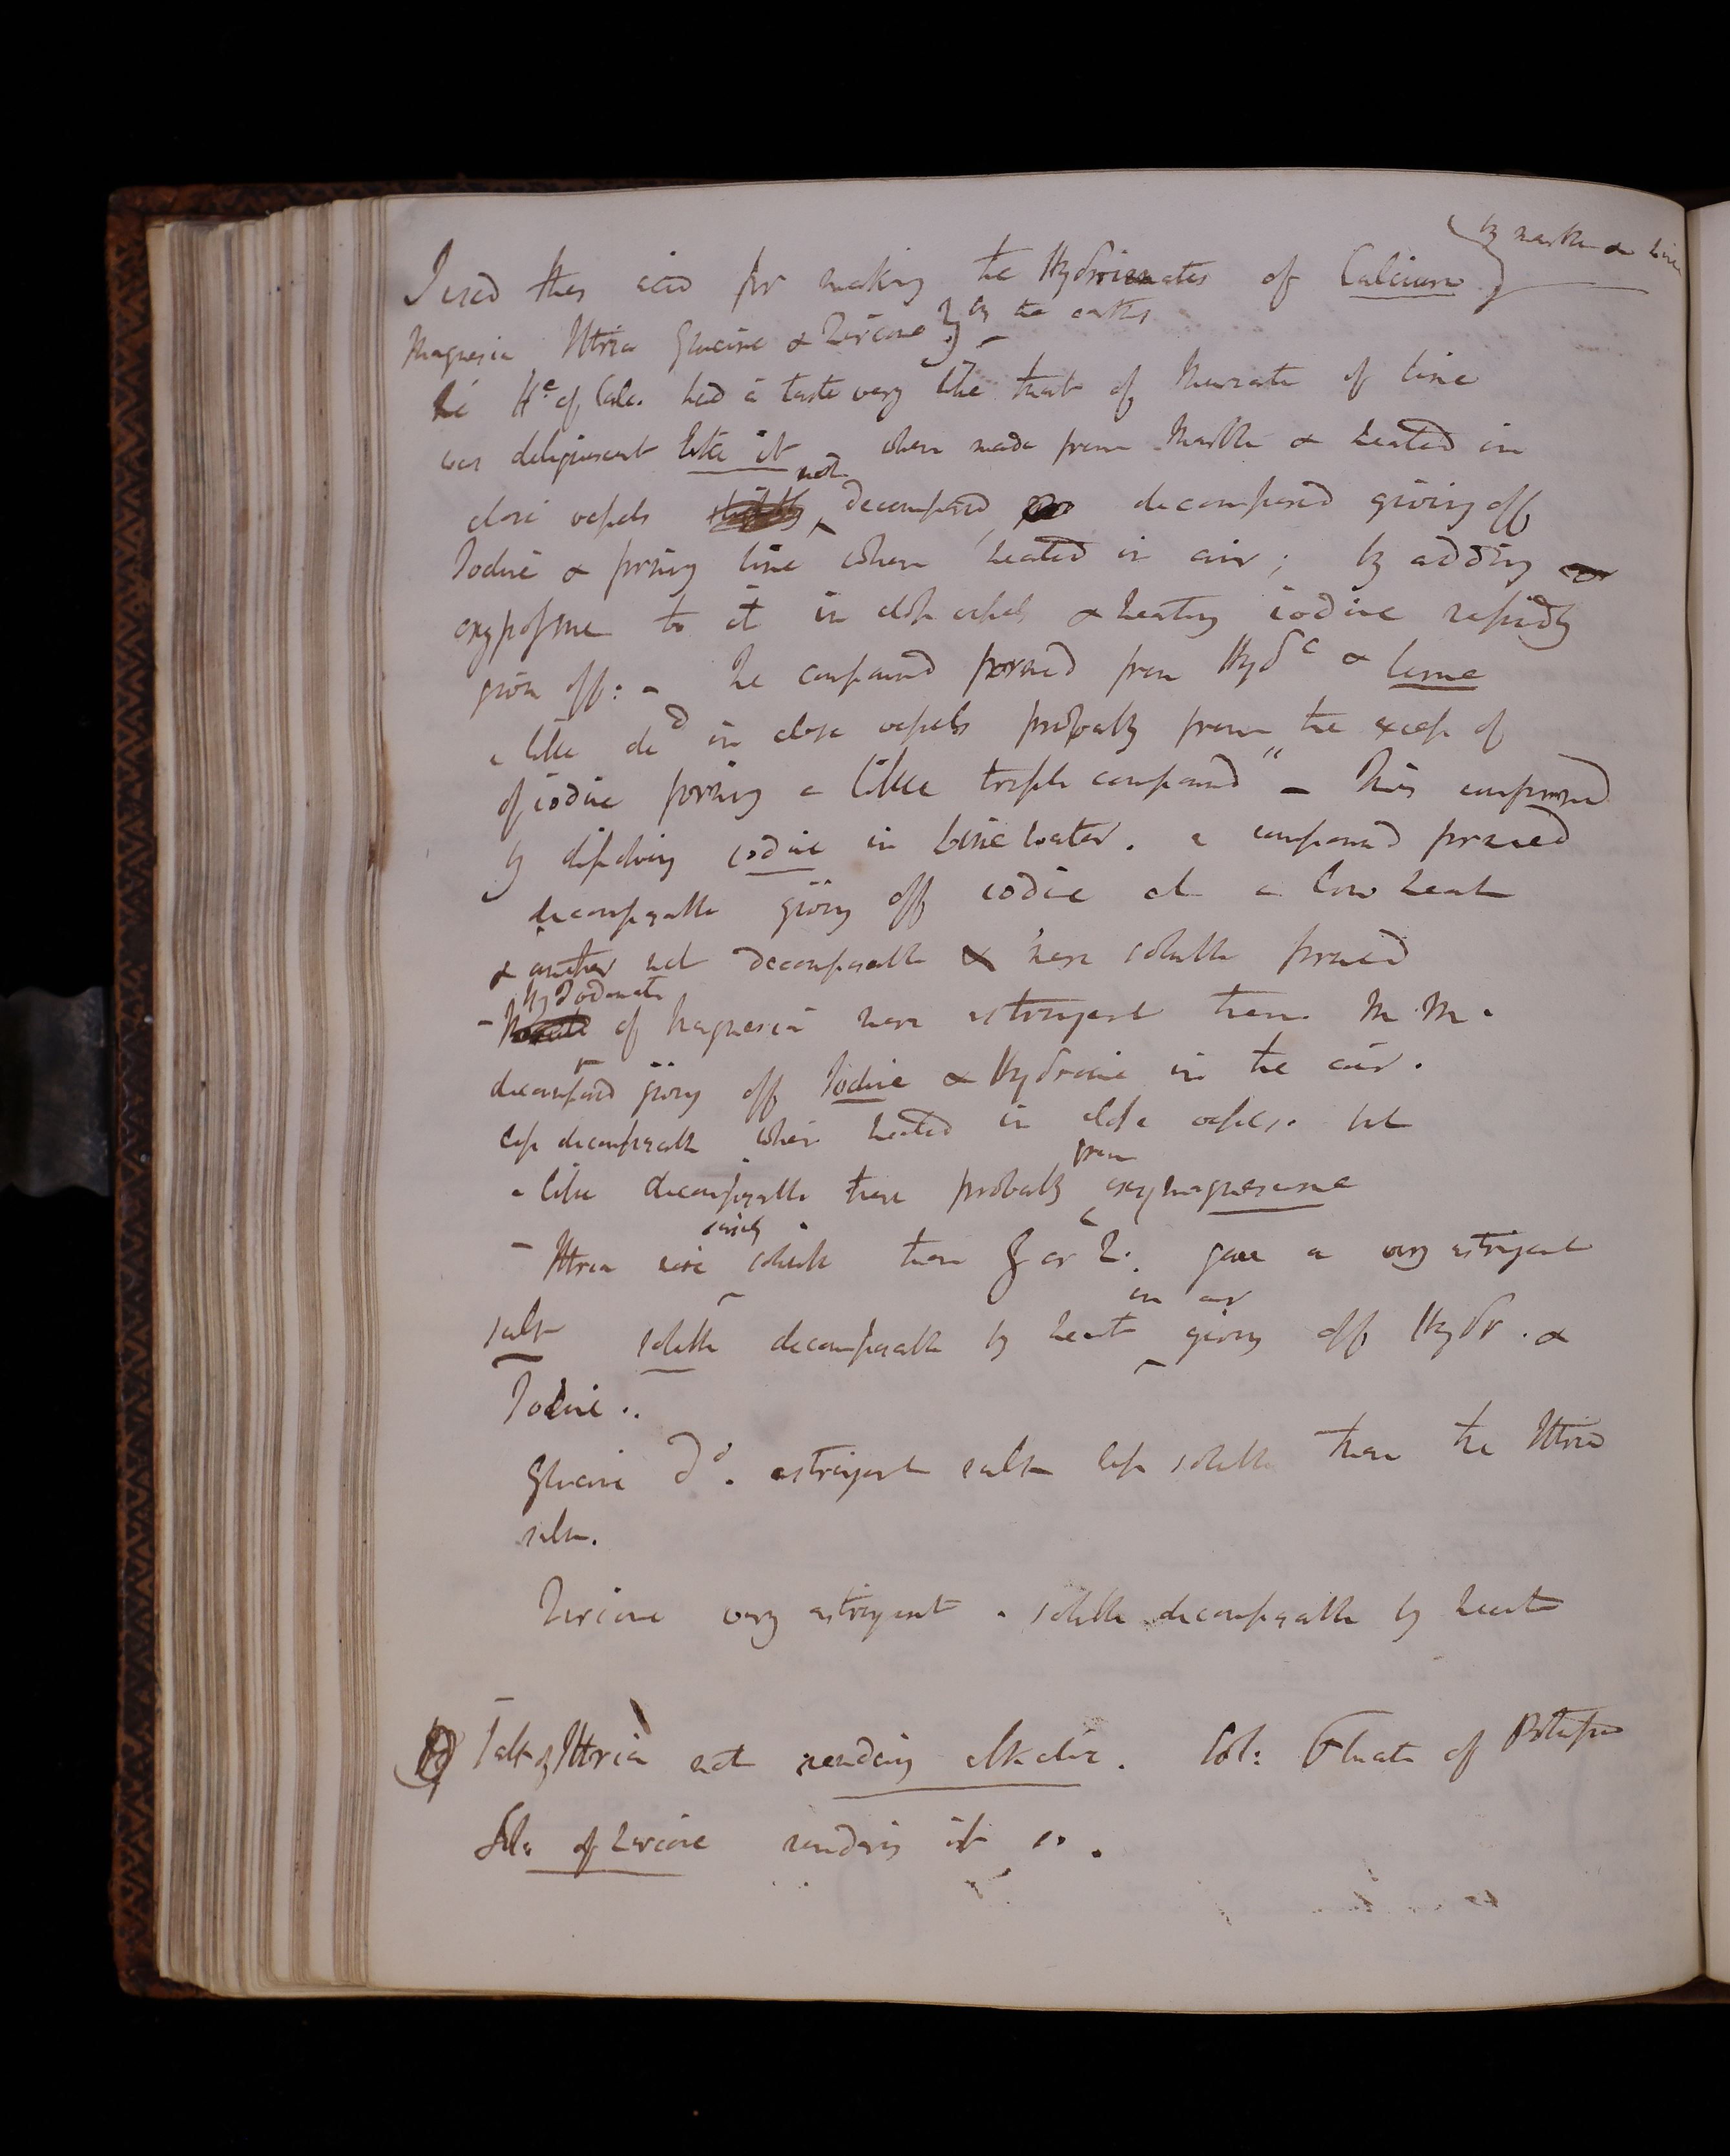 by marble & lime
I used this acid for making the Hydroionates of Calcium
Magnesia Ittria Glucine & Zircone by the earths
The H.e of Calc. had a taste very like that of Muriate of lime
was deliquescent like it when made from Marble & heated in
close vessels not decomposed decomposed giving off
Iodine & forming lime when heated in air; by adding
to it in close vessels & heating iodine rapidly
given off: - The compound formed from Hydc & lime
a little ded in close vessels probably from the excess of
of iodine forming a little triple compound" - This compound
by dissolving iodine in Lime water. a compound formed
decomposable giving off iodine at a low heat
& another not decomposable & more soluble formed
- Hydroionate of Magnesia more astringent than M. M.
decomposed giving off Iodine & Hydroionic in the air.
less decomposable when heated in close vessels. but
a little decomposable there probably from oxymagnesine
- Ittria more easily soluble than G or Z. gave a very astringent
salt soluble decomposable by heat in air giving off Hydr. &
Iodine..
Glucine Do. astringent salt less soluble than the Ittria
salt.
Zircone very astringent. soluble decomposable by heat
Salt of Ittria not rendering alkaline. Sol: Fluate of Potassa
Sol: of Zircone rendering it so.